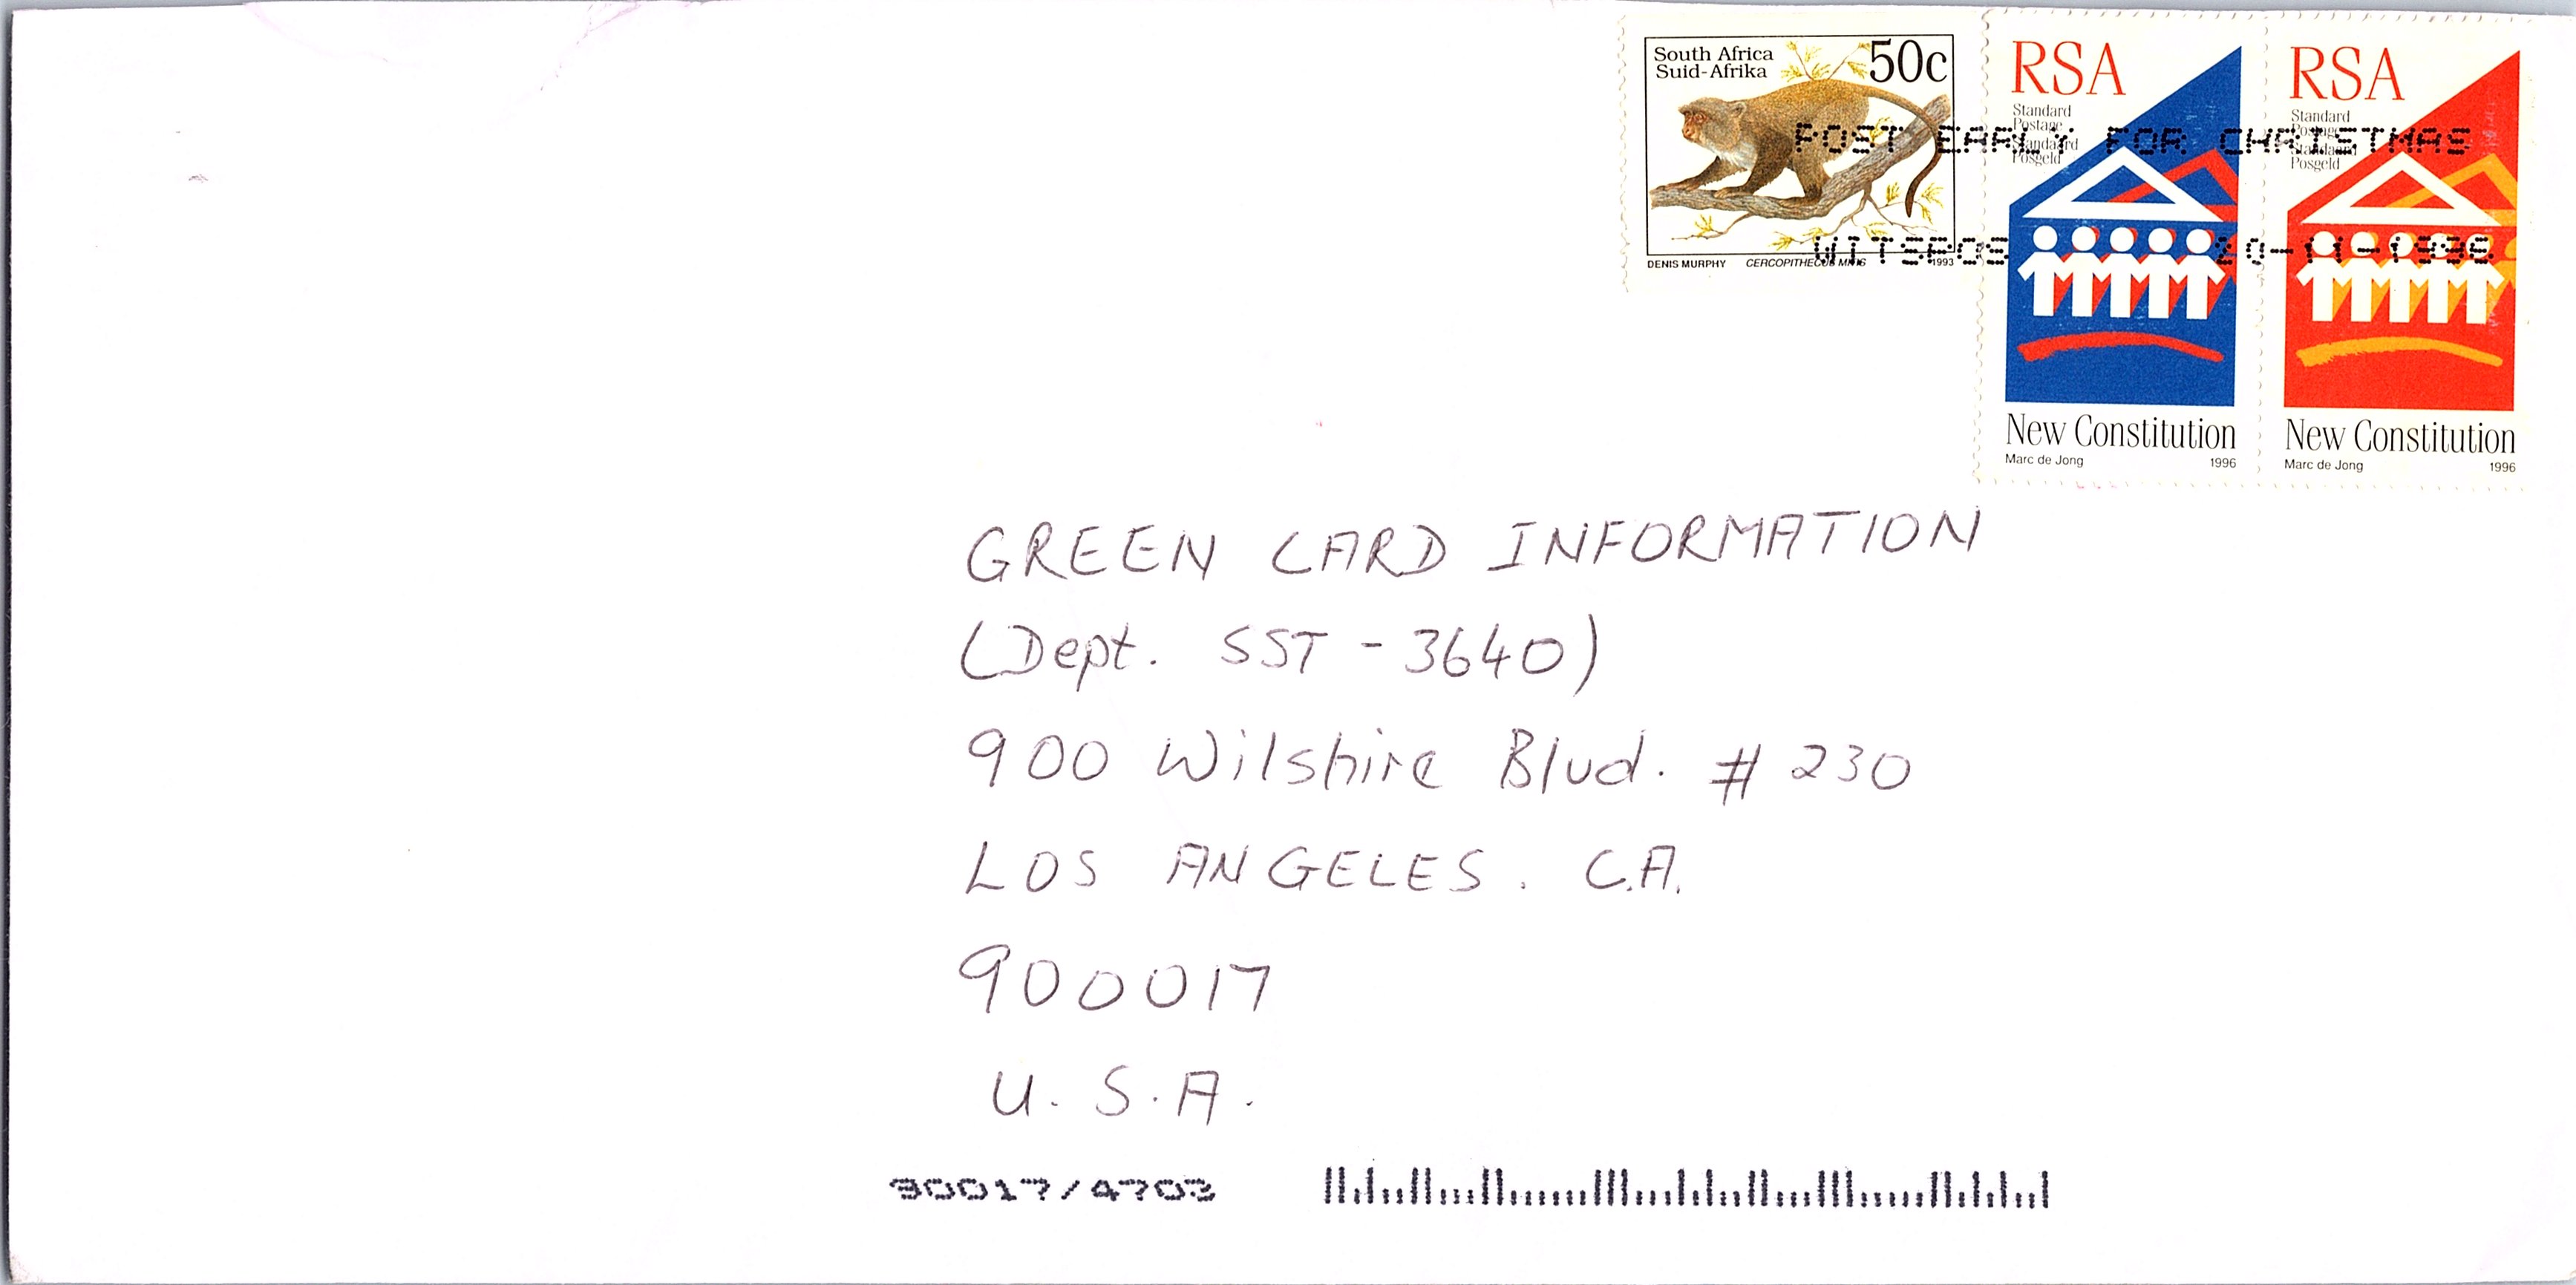 South Africa
Suid-Afrika
50c
DENIS MURPHY CERCOPITHECUS MITIS 1993
RSA
Standard
Postage
Standaard
Posgeld
New Constitution
Marc de Jong 1996
RSA
Standard
Postage
Standaard
Posgeld
New Constitution
Marc de Jong 1996
POST EARLY FOR CHRISTMAS
WITSPOS 20-11-1996
GREEN CARD INFORMATION
(Dept. SST - 3640)
900 Wilshire Blvd. # 230
LOS ANGELES. C.A.
900017
U. S. A.
90017/4703